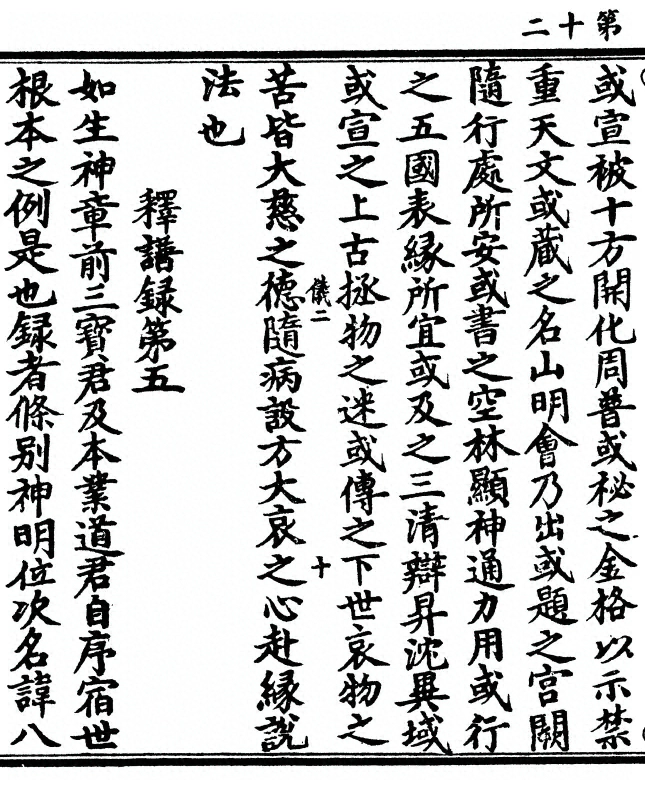 第十二
或宣被十方開化周普或祕之金格以示禁
重天文或蔵之名山明㑹乃出或題之宫闕
隨行處所安或書之空林顯神通力用或行
之五國表縁所宜或及之三清辯昇沈異域
或宣之上古拯物之迷或傳之下世哀物之
儀二
十
苦皆大慈之德隨病設方大哀之心赴縁說
法也
釋譜録第五
如生神章前三寶君及本業道君自序宿世
根本之例是也録者條别神明位次名諱八